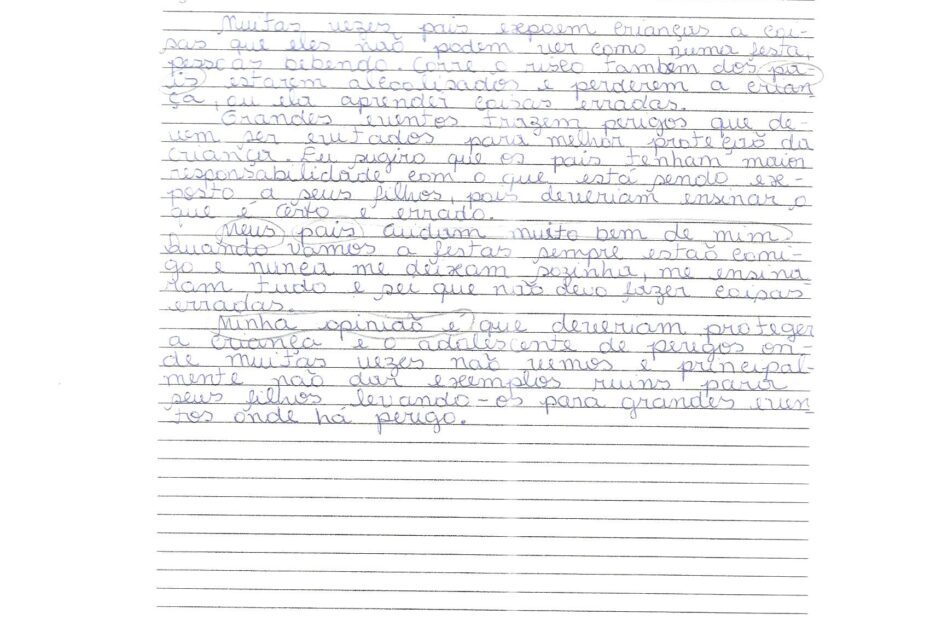 Muitas vezes pais expoem crianças a coi-
sas que eles não podem ver como numa festa,
pessoas bebendo. Corre o risco também dos pa-
is estarem alcolisados e perderem a crian-
ça, ou ela aprender coisas erradas.
Grandes eventos trazem perigos que de-
vem ser evitados para melhor proteção da
criança. Eu sugiro que os pais tenham maior
responsabilidade com o que está sendo ex-
posto a seus filhos, pois deveriam ensinar o
que é certo e errado.
Meus pais cuidam muito bem de mim.
Quando vamos a festas sempre estão comi-
go e nunca me deixam sozinha, me ensina
ram tudo e sei que não devo fazer coisas
erradas.
Minha opinião é que deveriam proteger
a criança e o adolescente de perigos on-
de muitas vezes não vemos e principal-
mente não dar exemplos ruins para
seus filhos levando-os para grandes even-
tos onde há perigo.